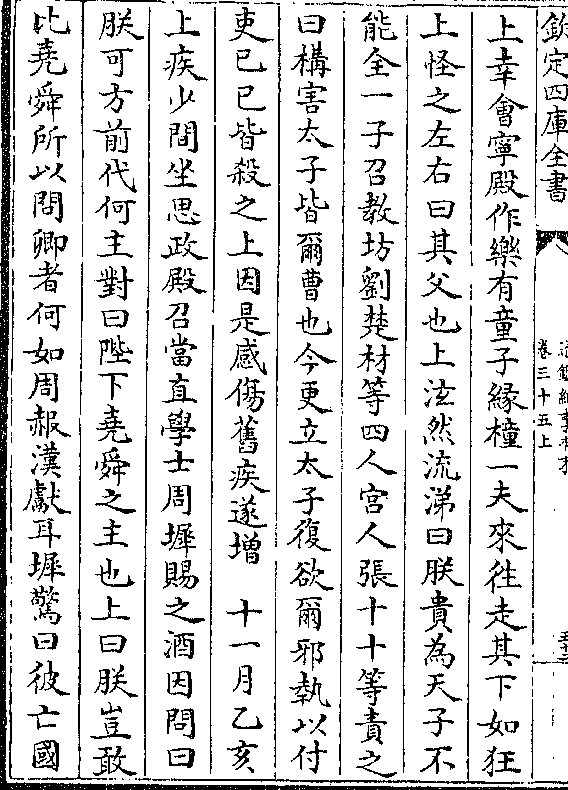 欽定四庫全書
通鑑紀事本末
卷三十五上
上幸會寧殿作樂有童子緣橦一夫來往走其下如狂
上怪之左右曰其父也上泫然流涕曰朕貴為天子不
能全一子召教坊劉楚材等四人宫人張十十等責之
曰構害太子皆爾曹也今更立太子復欲爾邪執以付
吏己巳皆殺之上因是感傷舊疾遂增　十一月乙亥
上疾少間坐思政殿召當直學士周墀賜之酒因問曰
朕可方前代何主對曰陛下堯舜之主也上曰朕豈敢
比堯舜所以問卿者何如周赧漢獻耳墀驚曰彼亡國